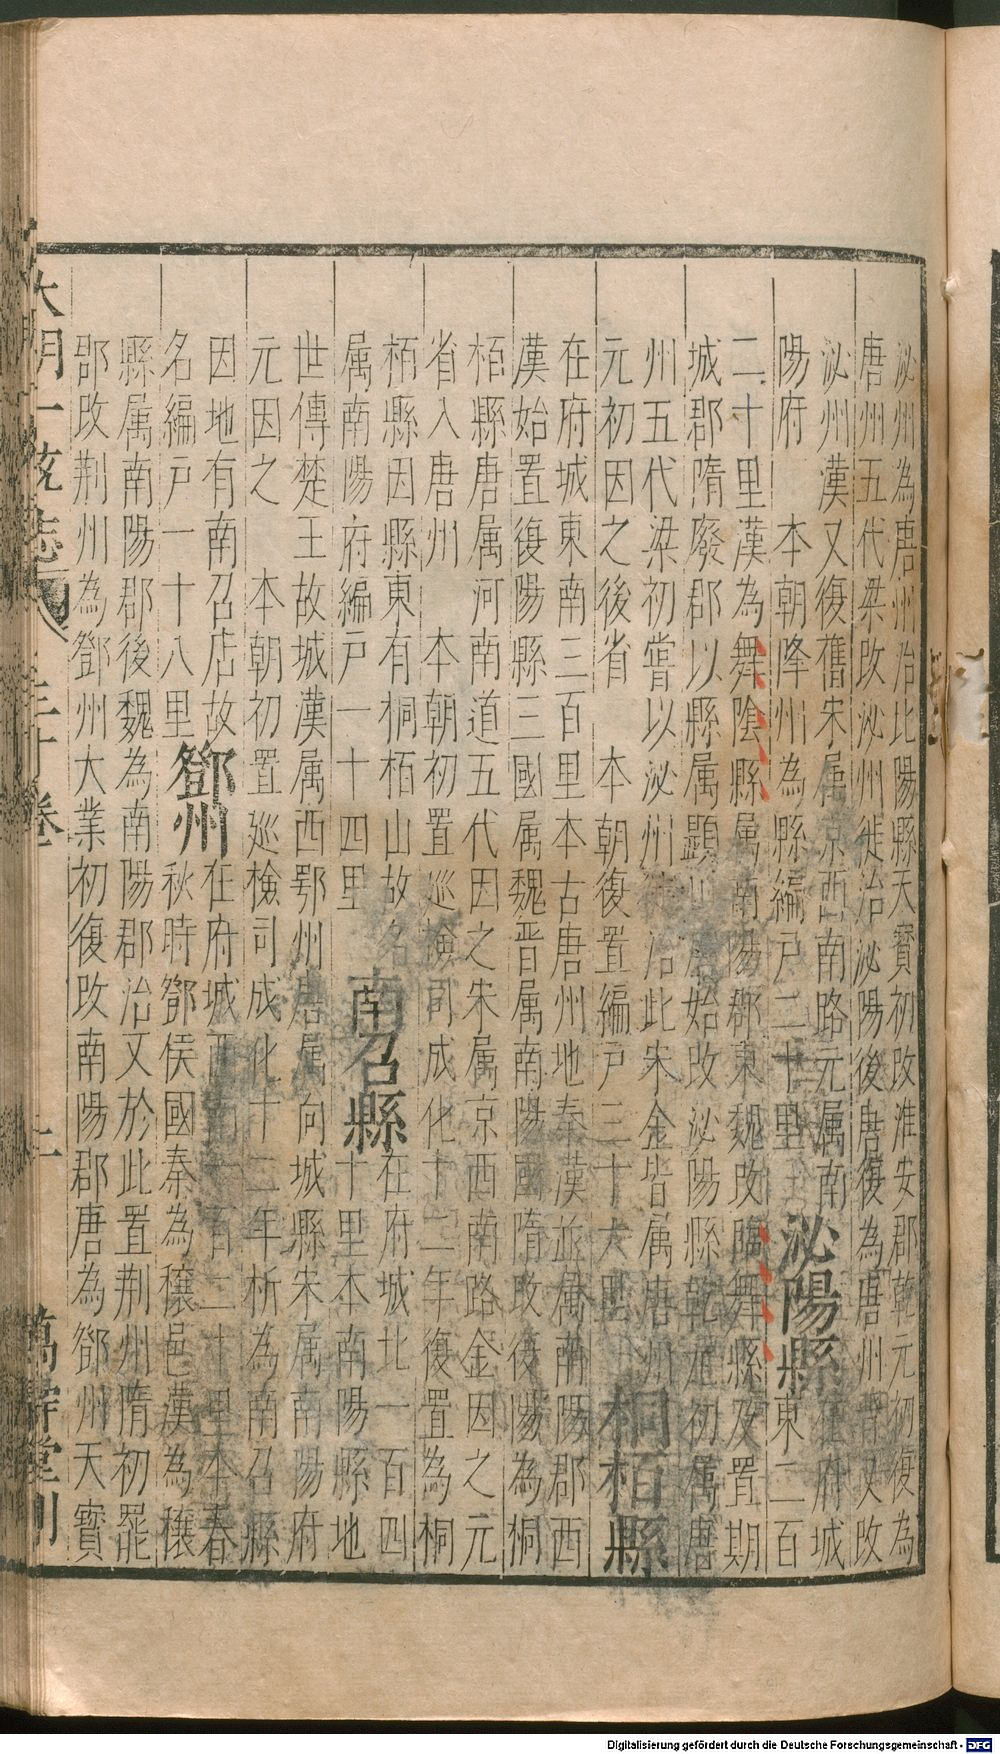 泌州為唐州治比陽縣天寶初改淮安郡乾元初復為
唐州五代梁改泌州徙治泌陽後唐復為唐州晉又改
泌州漢又復舊宋屬京西南路元属南
陽府 本朝降州為縣編戶二十里
泌陽縣
在府城
東二百
二十里漢為舞陰縣属南陽郡東魏改臨舞縣及置期
城郡隋廢郡以縣属顯州唐始改泌陽縣乾元初属唐
州五代梁初嘗以泌州徙治此宋金皆属唐州
元初因之後省 本朝復置編戶三十六里
桐栢縣
在府城東南三百里本古唐州地秦漢並属南陽郡西
漢始置復陽縣三國属魏晉属南陽國隋改復陽為桐
栢縣唐属河南道五代因之宋属京西南路金因之元
省入唐州 本朝初置巡檢司成化十二年復置為桐
栢縣因縣東有桐栢山故名
属南陽府編戶一十四里
南召縣
在府城北一百四
十里本南陽縣地
世傳楚王故城漢属西鄂州唐属向城縣宋属南陽府
元因之 本朝初置巡檢司成化十二年析為南召縣
因地有南召店故
名編戶一十八里
鄧州
在府城西南一百二十里本春
秋時鄧侯國秦為穰邑漢為穰
縣属南陽郡後魏為南陽郡治又於此置荆州隋初罷
郡改荆州為鄧州大業初復改南陽郡唐為鄧州天寶
大明一統志 三十卷 萬壽堂刊
Digitalisierung gefördert durch die Deutsche Forschungsgemeinschaft - DFG